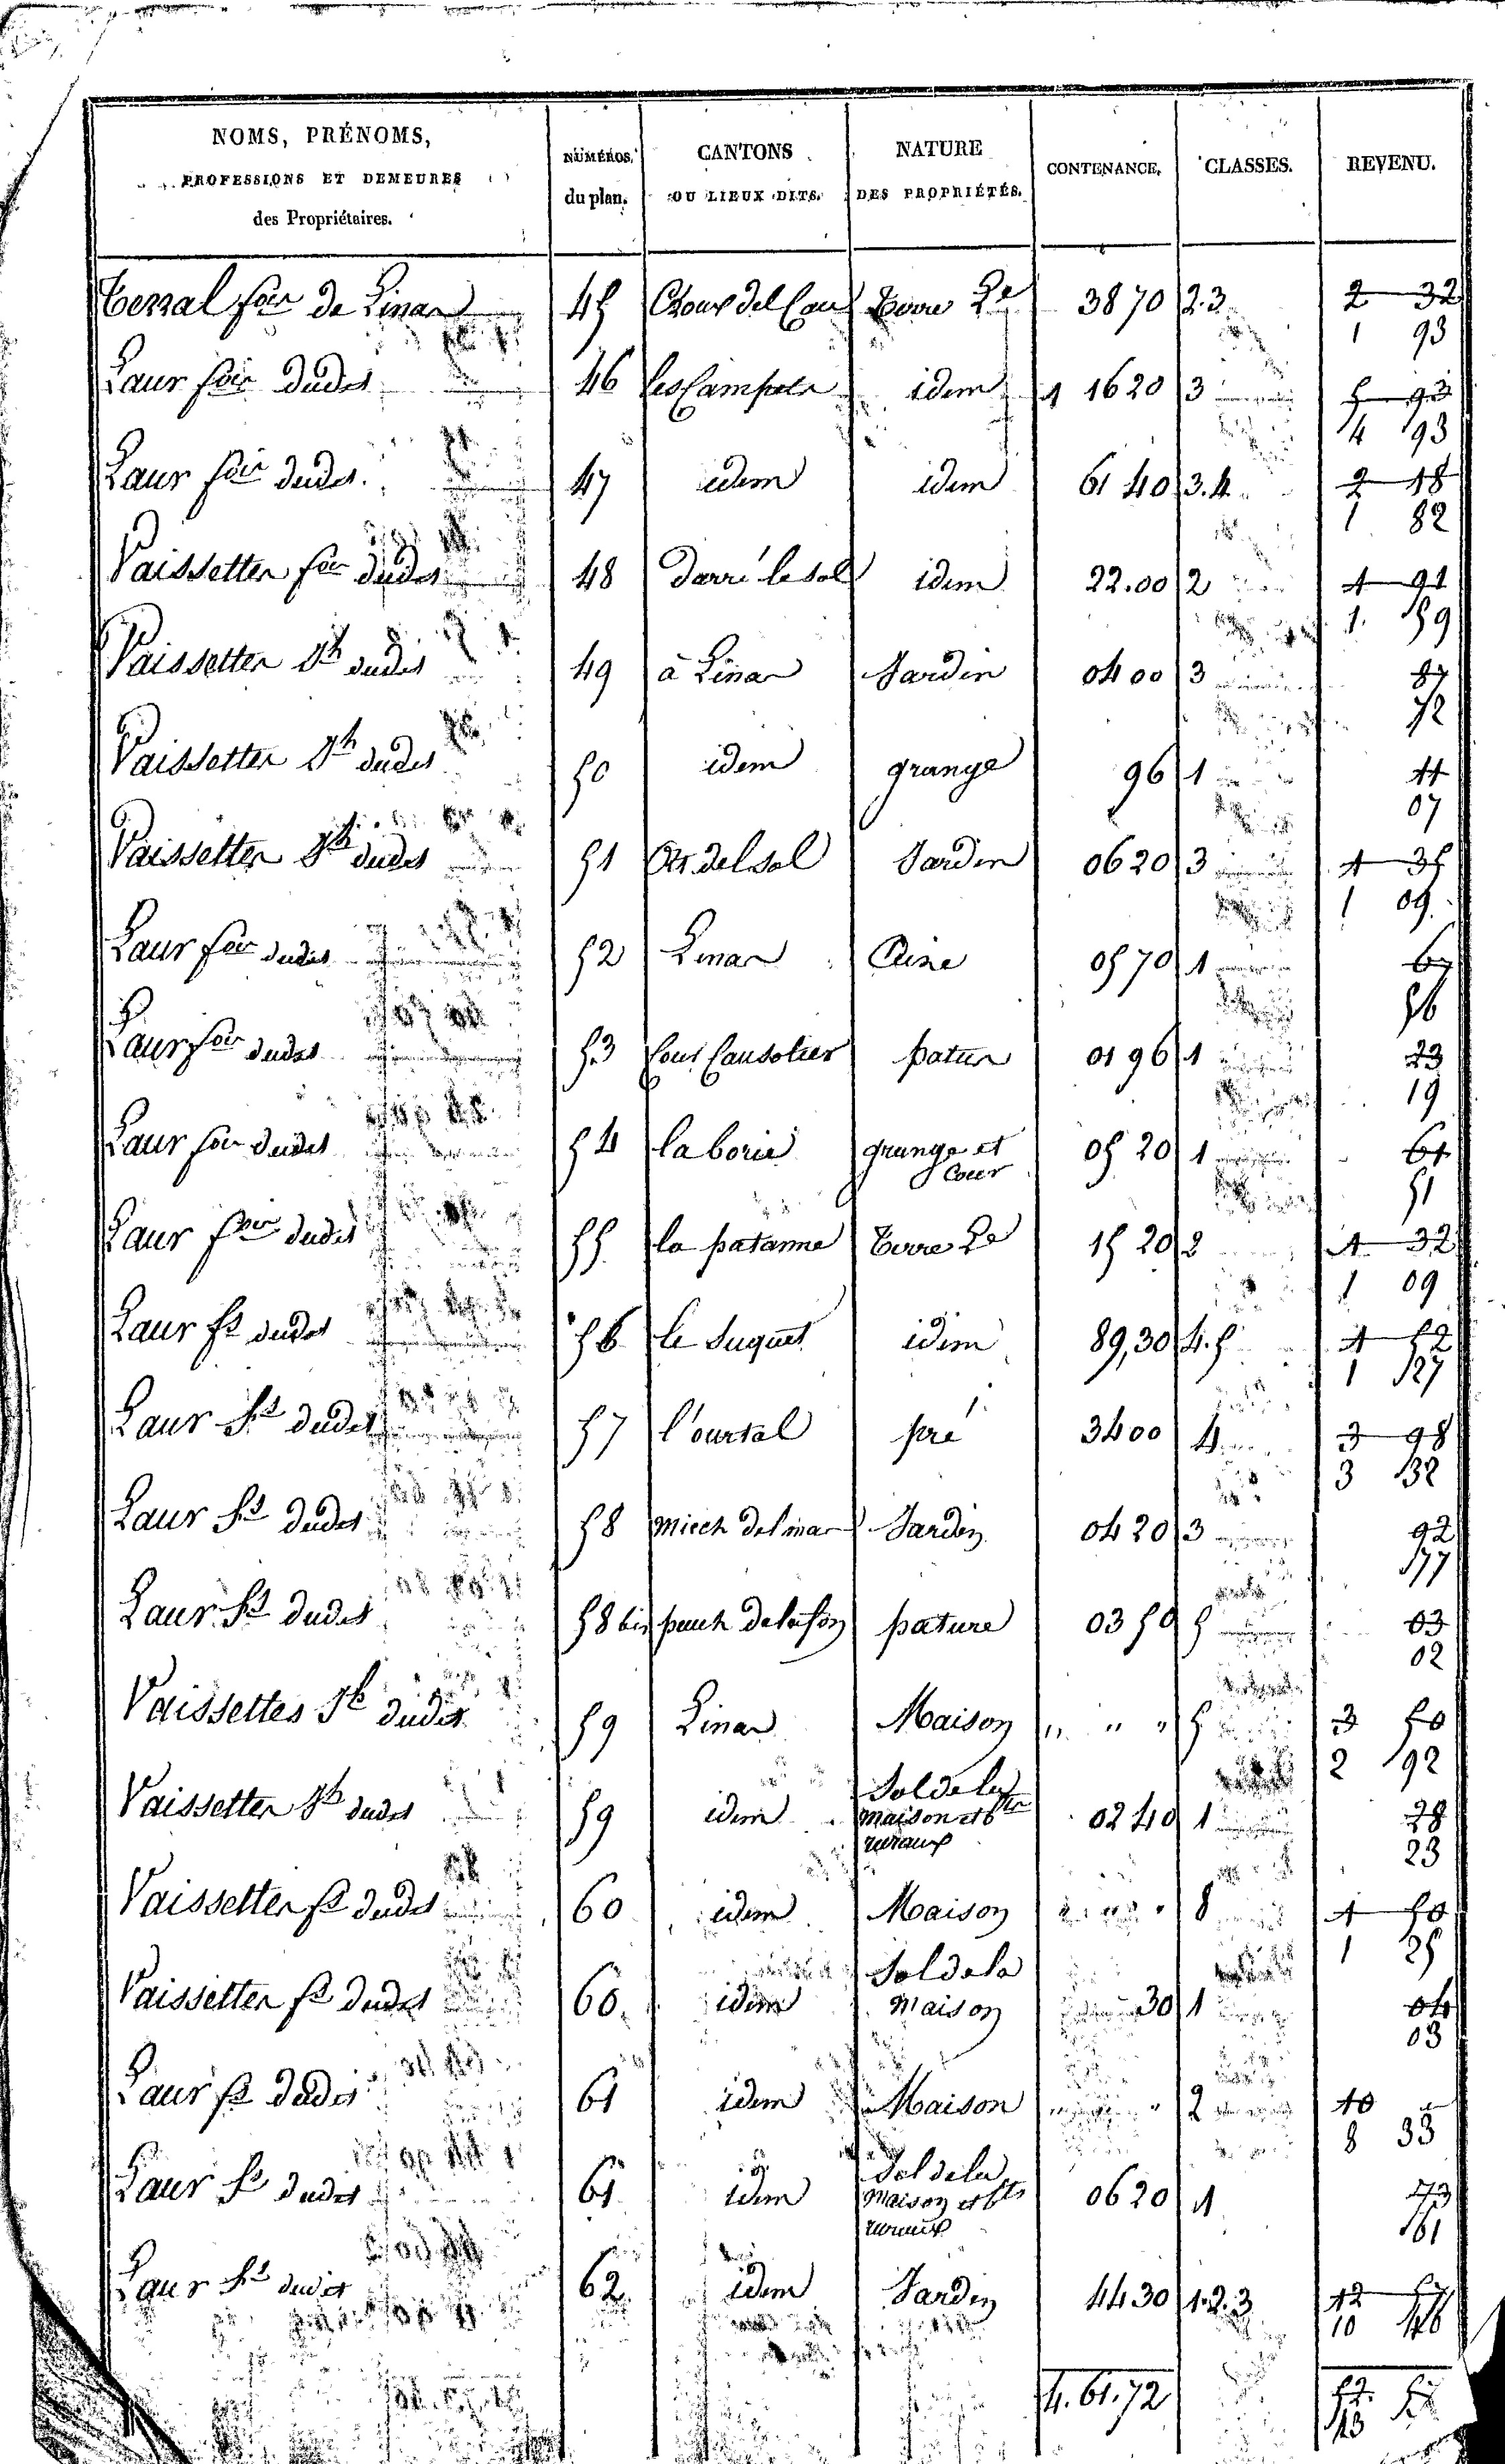 NOMS, PRÉNOMS, PROFESSIONS ET DEMEURES des Propriétaires. | NUMÉROS, du plan. | CANTONS OU LIEUX DITS. | NATURE DES PROPRIÉTÉS. | CONTENANCE. | CLASSES. | REVENU.
foir de Linar 45 3870 2.3 2 32
1 93
Laur foir dudit 46 idem 1 1620 3 5 93
4 93
Laur foir dudit 47 idem idem 61 40 3.4 2 18
1 82
Vaissettes foir dudit 48 darré le sol idem 22.00 2 1 91
1. 59
Vaissettes Jh dudit 49 à Linar Jardin 04 00 3 87
72
Vaissettes Jh dudit 50 idem grange 96 1 11
07
Vaissettes Jh dudit 51 del sol Jardin 06 20 3 1 35
1 09
Laur foir dudit 52 Linar 05 70 1 67
56
Laur foir dudit 53 patur 01 96 1 23
19
Laur foir dudit 54 la borie grange et cour 05 20 1 61
51
Laur foir dudit 55 la patanne Terre Le 15 20 2 1 32
1 09
Laur fs dudit 56 le suquet idem 89,30 4.5 1 52
1 27
Laur fs dudit 57 l'ourtal pré 34 00 4 3 98
3 32
Laur fs dudit 58 miech del mar Jardin 04 20 3 92
77
Laur fs dudit 58 bis puech de la fon pature 03 50 5 03
02
Vaissettes Jh dudit 59 Linar Maison " " " 5 3 50
2 92
Vaissettes Jh dudit 59 idem Sol de la maison et bts ruraux 02 40 1 28
23
Vaissettes fs dudit 60 idem Maison 8 1 50
1 25
Vaissettes fs dudit 60 idem Sol de la maison 30 1 04
03
Laur fs dudit 61 idem Maison 2 10
8 33
Laur fs dudit 61 idem Sol de la maison et bts ruraux 06 20 1 73
61
Laur fs dudit 62 idem Jardin 44 30 1.2.3 12 57
10 46
4.61.72 52
43